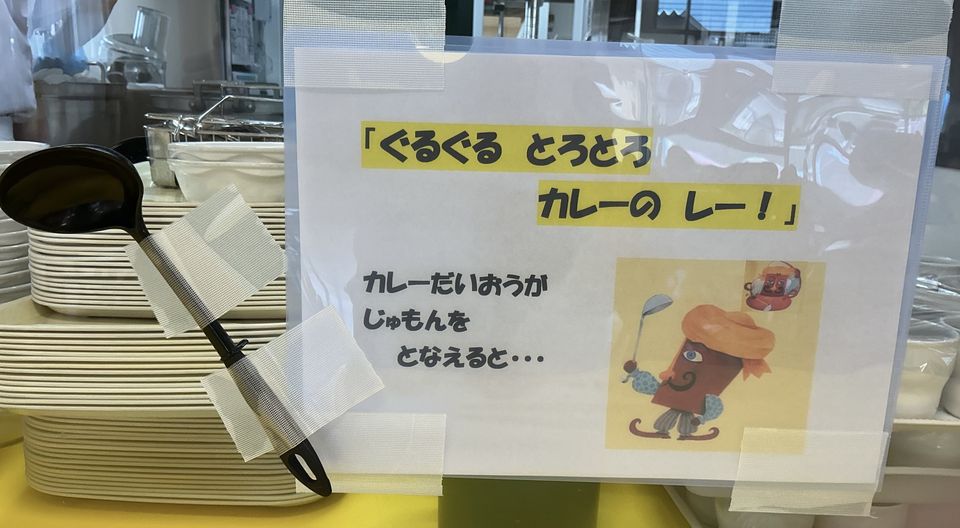 「ぐるぐる とろとろ
カレーの レー！」
カレーだいおうが
じゅもんを
となえると・・・